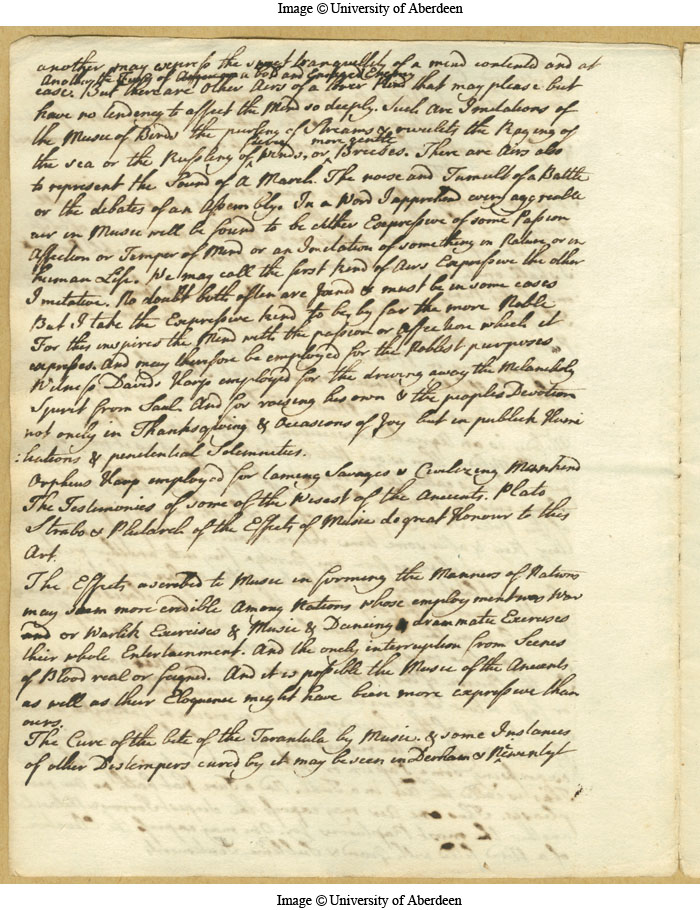 Image © University of Aberdeen
another may express the sweet tranquillity of a mind contented and at
Another the Fury of Angeragainst a bold and Enraged Enemy
ease. But there are other Airs of a lower kind that may please but
have no tendency to affect the Mind so deeply. Such are Imitations of
the Music of Birds the purling of Streams & rivulets, the Raging of
fierce more gentle
the sea or the Russling of Winds, or Breeses. There are Airs also
to represent the Sound of A March. The noise and Tumult of a Battle
or the debates of an Assembly. In a Word I apprehend every aggreable
air in Music will be found to be either Expressive of some Passion
Affection or Temper of Mind or an Imitation of something in Nature, or in
human Life. We may call the first kind of Airs Expressive the other
Imitative. No doubt both often are joind & must be in some cases
But I take the Expressive kind to be by far the more Noble
For this inspires the Mind with the passion or affection which it
expresses. And may therefore be employed for the Noblest purposes
Witness Davids Harp employed for the driving away the Melancholy
Spirit from Saul. And for raising his own & the peoples Devotion
not onely in Thanksgiving & Occasions of Joy but in publick Humi
:liations & penitential Solemnities.
Orpheus Harp employed for taming Savages & Civilizing Mankind
The Testimonies of some of the Wisest of the Ancients. Plato
Strabo & Plutarch of the Effects of Music do great Honour to this
Art.
The Effects ascribed to Music in forming the Manners of Nations
may seem more credible Among Nations whose employment was War
and or Warlik Exercises & Music & Dancing & dramatic Exercises
their whole Entertainment. And the onely interruption from Scenes
of Blood real or feigned. And it is possible the Music of the Ancients
as well as their Eloquence might have been more expressive than
ours.
The Cure of the bite of the Tarantula by Music. & some Instances
of other Distempers cured by it may be seen in Derham &
Image © University of Aberdeen